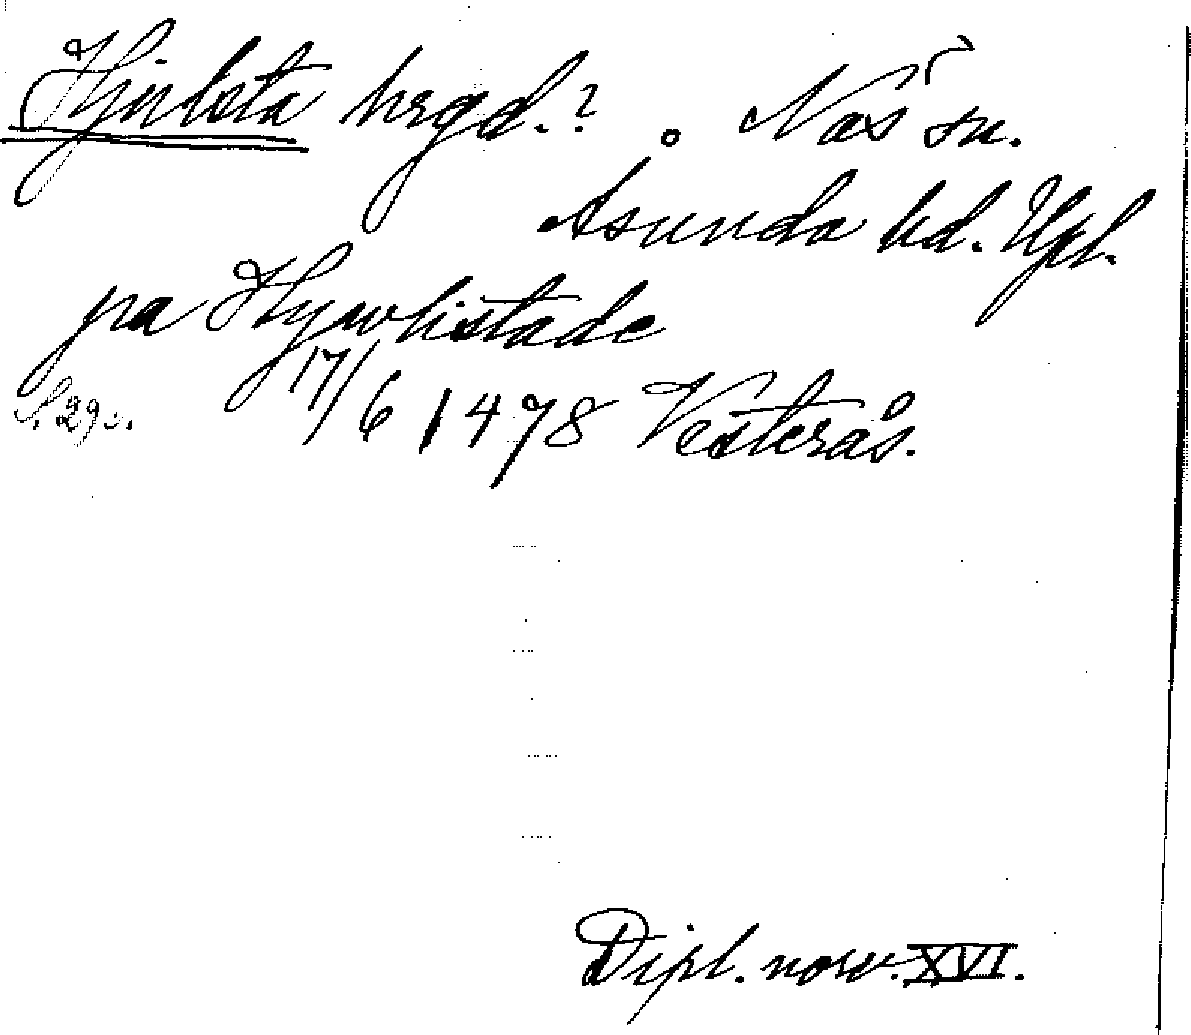 Hjulsta hrgd.? Näs sn.
Åsunda hd. Upl.
pa Hywlistade
S. 290. 17/6 1478 Vesterås.
Dipl. norv. XVI.